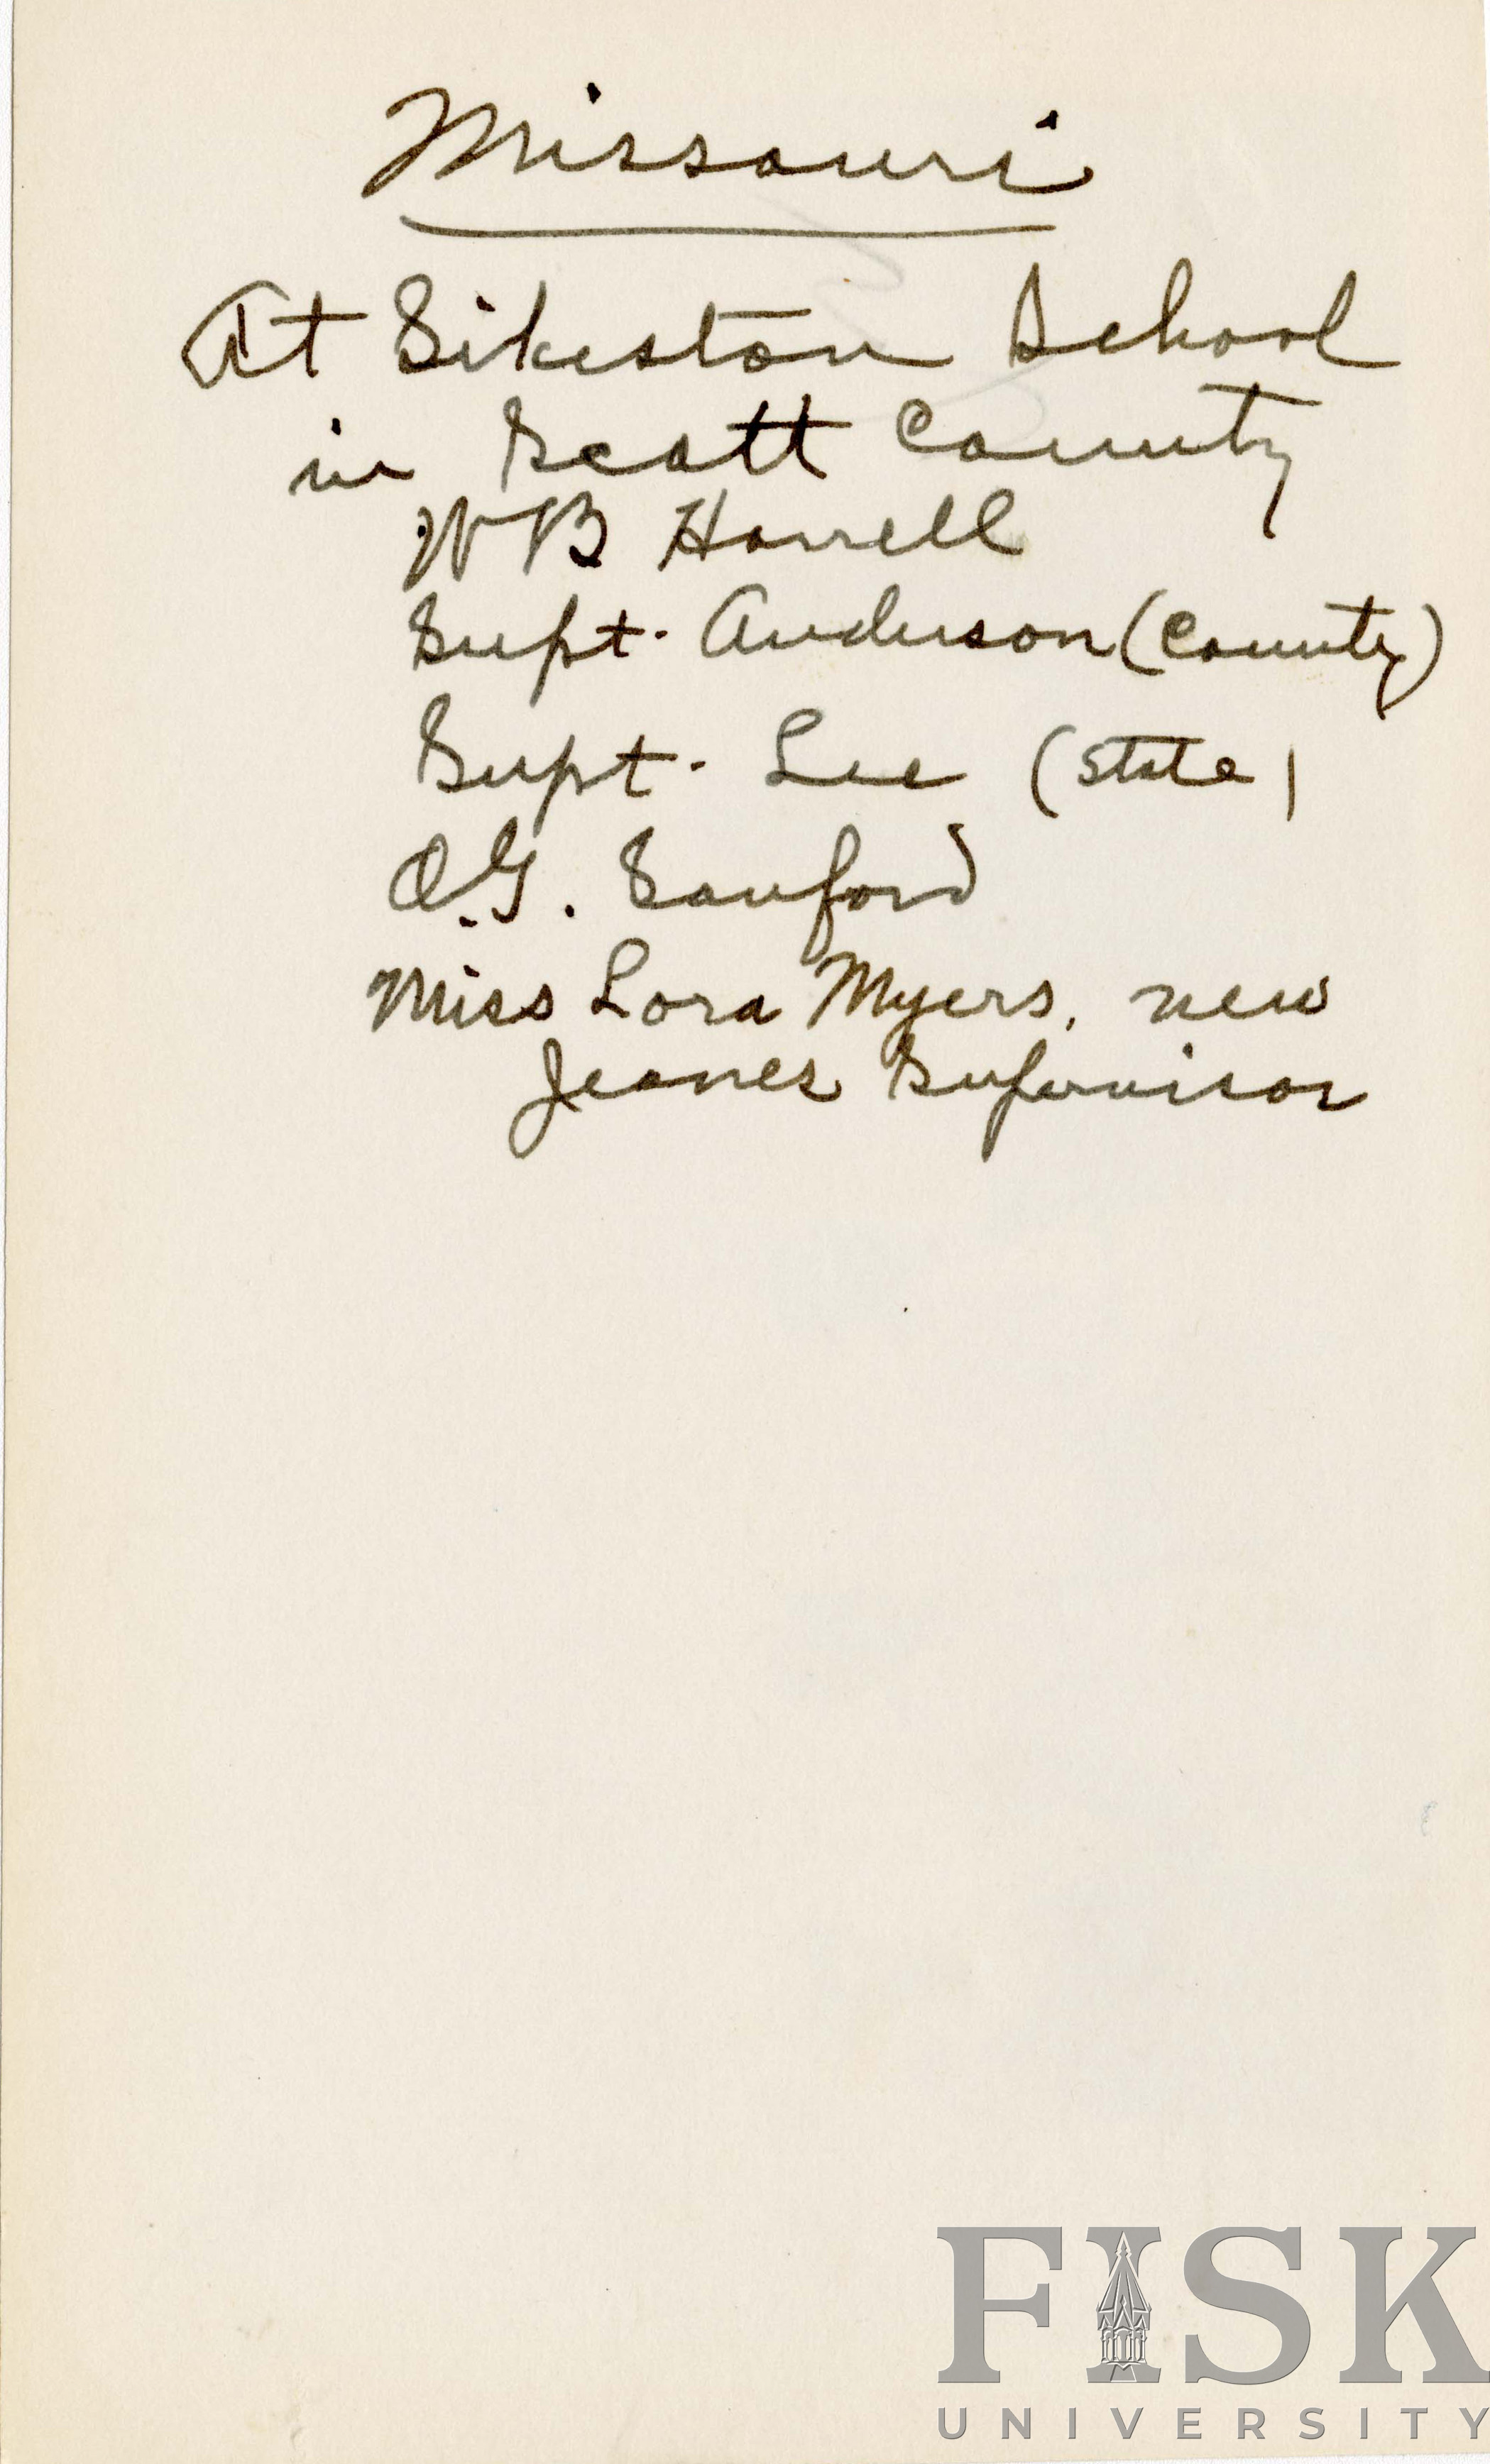 Missouri
At Sikeston School
in Scott County
W B
Supt. Anderson (County)
Supt. Lee (State)
O.G. Sanford
Miss Lora Myers, new
Jeanes Supervisor
FISK
UNIVERSITY